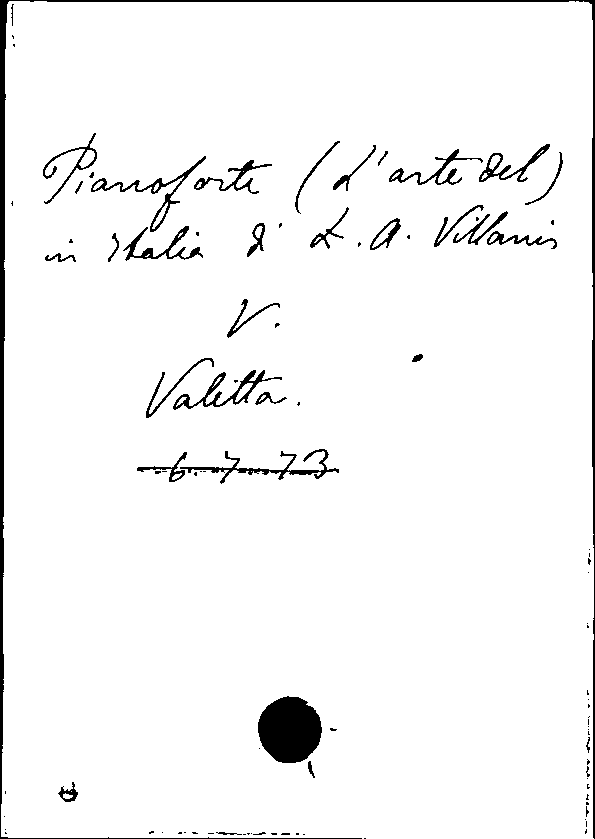 Pianoforte (L'arte del)
in Italia di L. A. Villanis
V.
Valetta.
6. 7. 73